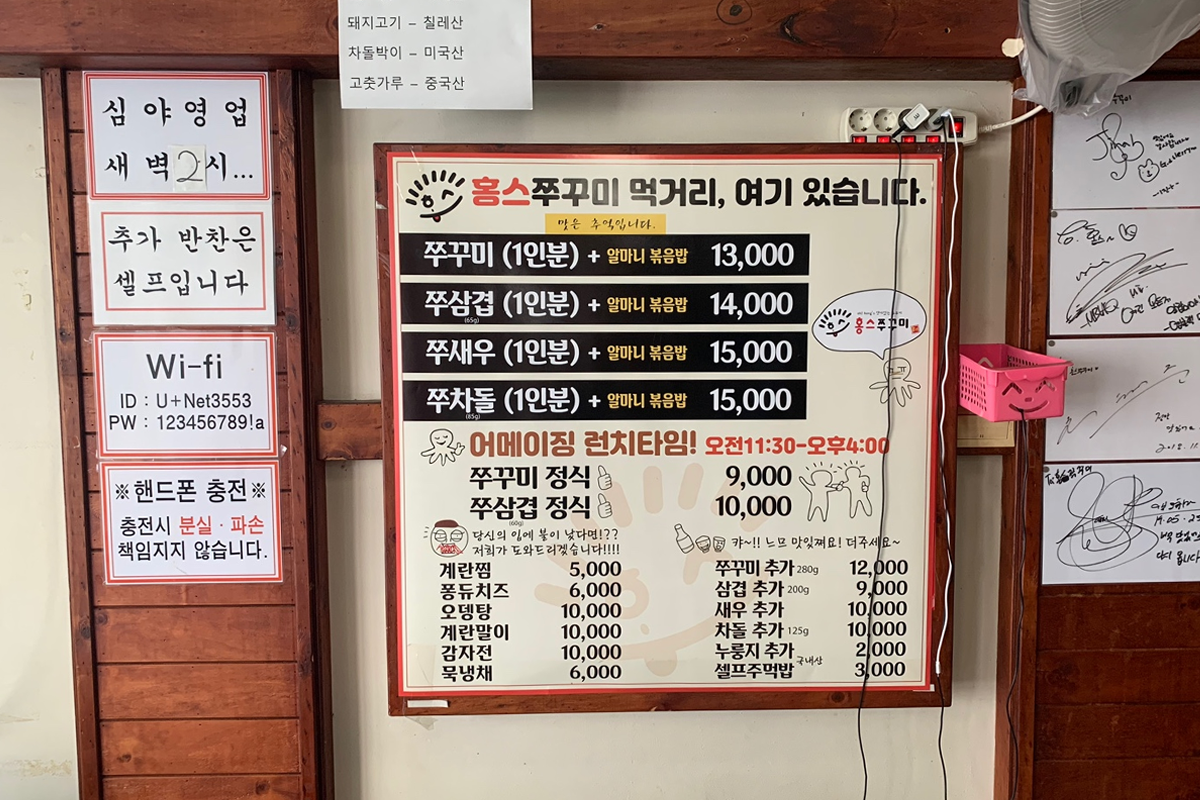 돼지고기 – 칠레산
차돌박이 – 미국산
고춧가루 – 중국산
심야영업
새벽2시...
추가 반찬은
셀프입니다
Wi-fi
ID : U+Net3553
PW : 123456789!a
※핸드폰 충전※
충전시 분실 · 파손
책임지지 않습니다.
홍스쭈꾸미 먹거리, 여기 있습니다.
맞은 추억입니다.
쭈꾸미 (1인분) + 알마니 볶음밥 13,000
쭈삼겹 (1인분) + 알마니 볶음밥 14,000
(65g)
쭈새우 (1인분) + 알마니 볶음밥 15,000
쭈차돌 (1인분) + 알마니 볶음밥 15,000
(85g)
홍스쭈꾸미
어메이징 런치타임! 오전11:30-오후4:00
쭈꾸미 정식 9,000
쭈삼겹 정식 10,000
(60g)
당신의 입에 불이 났다면!??
저희가 도와드리겠습니다!!!!
계란찜 5,000
퐁듀치즈 6,000
오뎅탕 10,000
계란말이 10,000
감자전 10,000
묵냉채 6,000
캬~!! 느므 맛있쪄요! 더주세요~
쭈꾸미 추가 280g 12,000
삼겹 추가 200g 9,000
새우 추가 10,000
차돌 추가 125g 10,000
누룽지 추가 2,000
국내산
셀프주먹밥 3,000